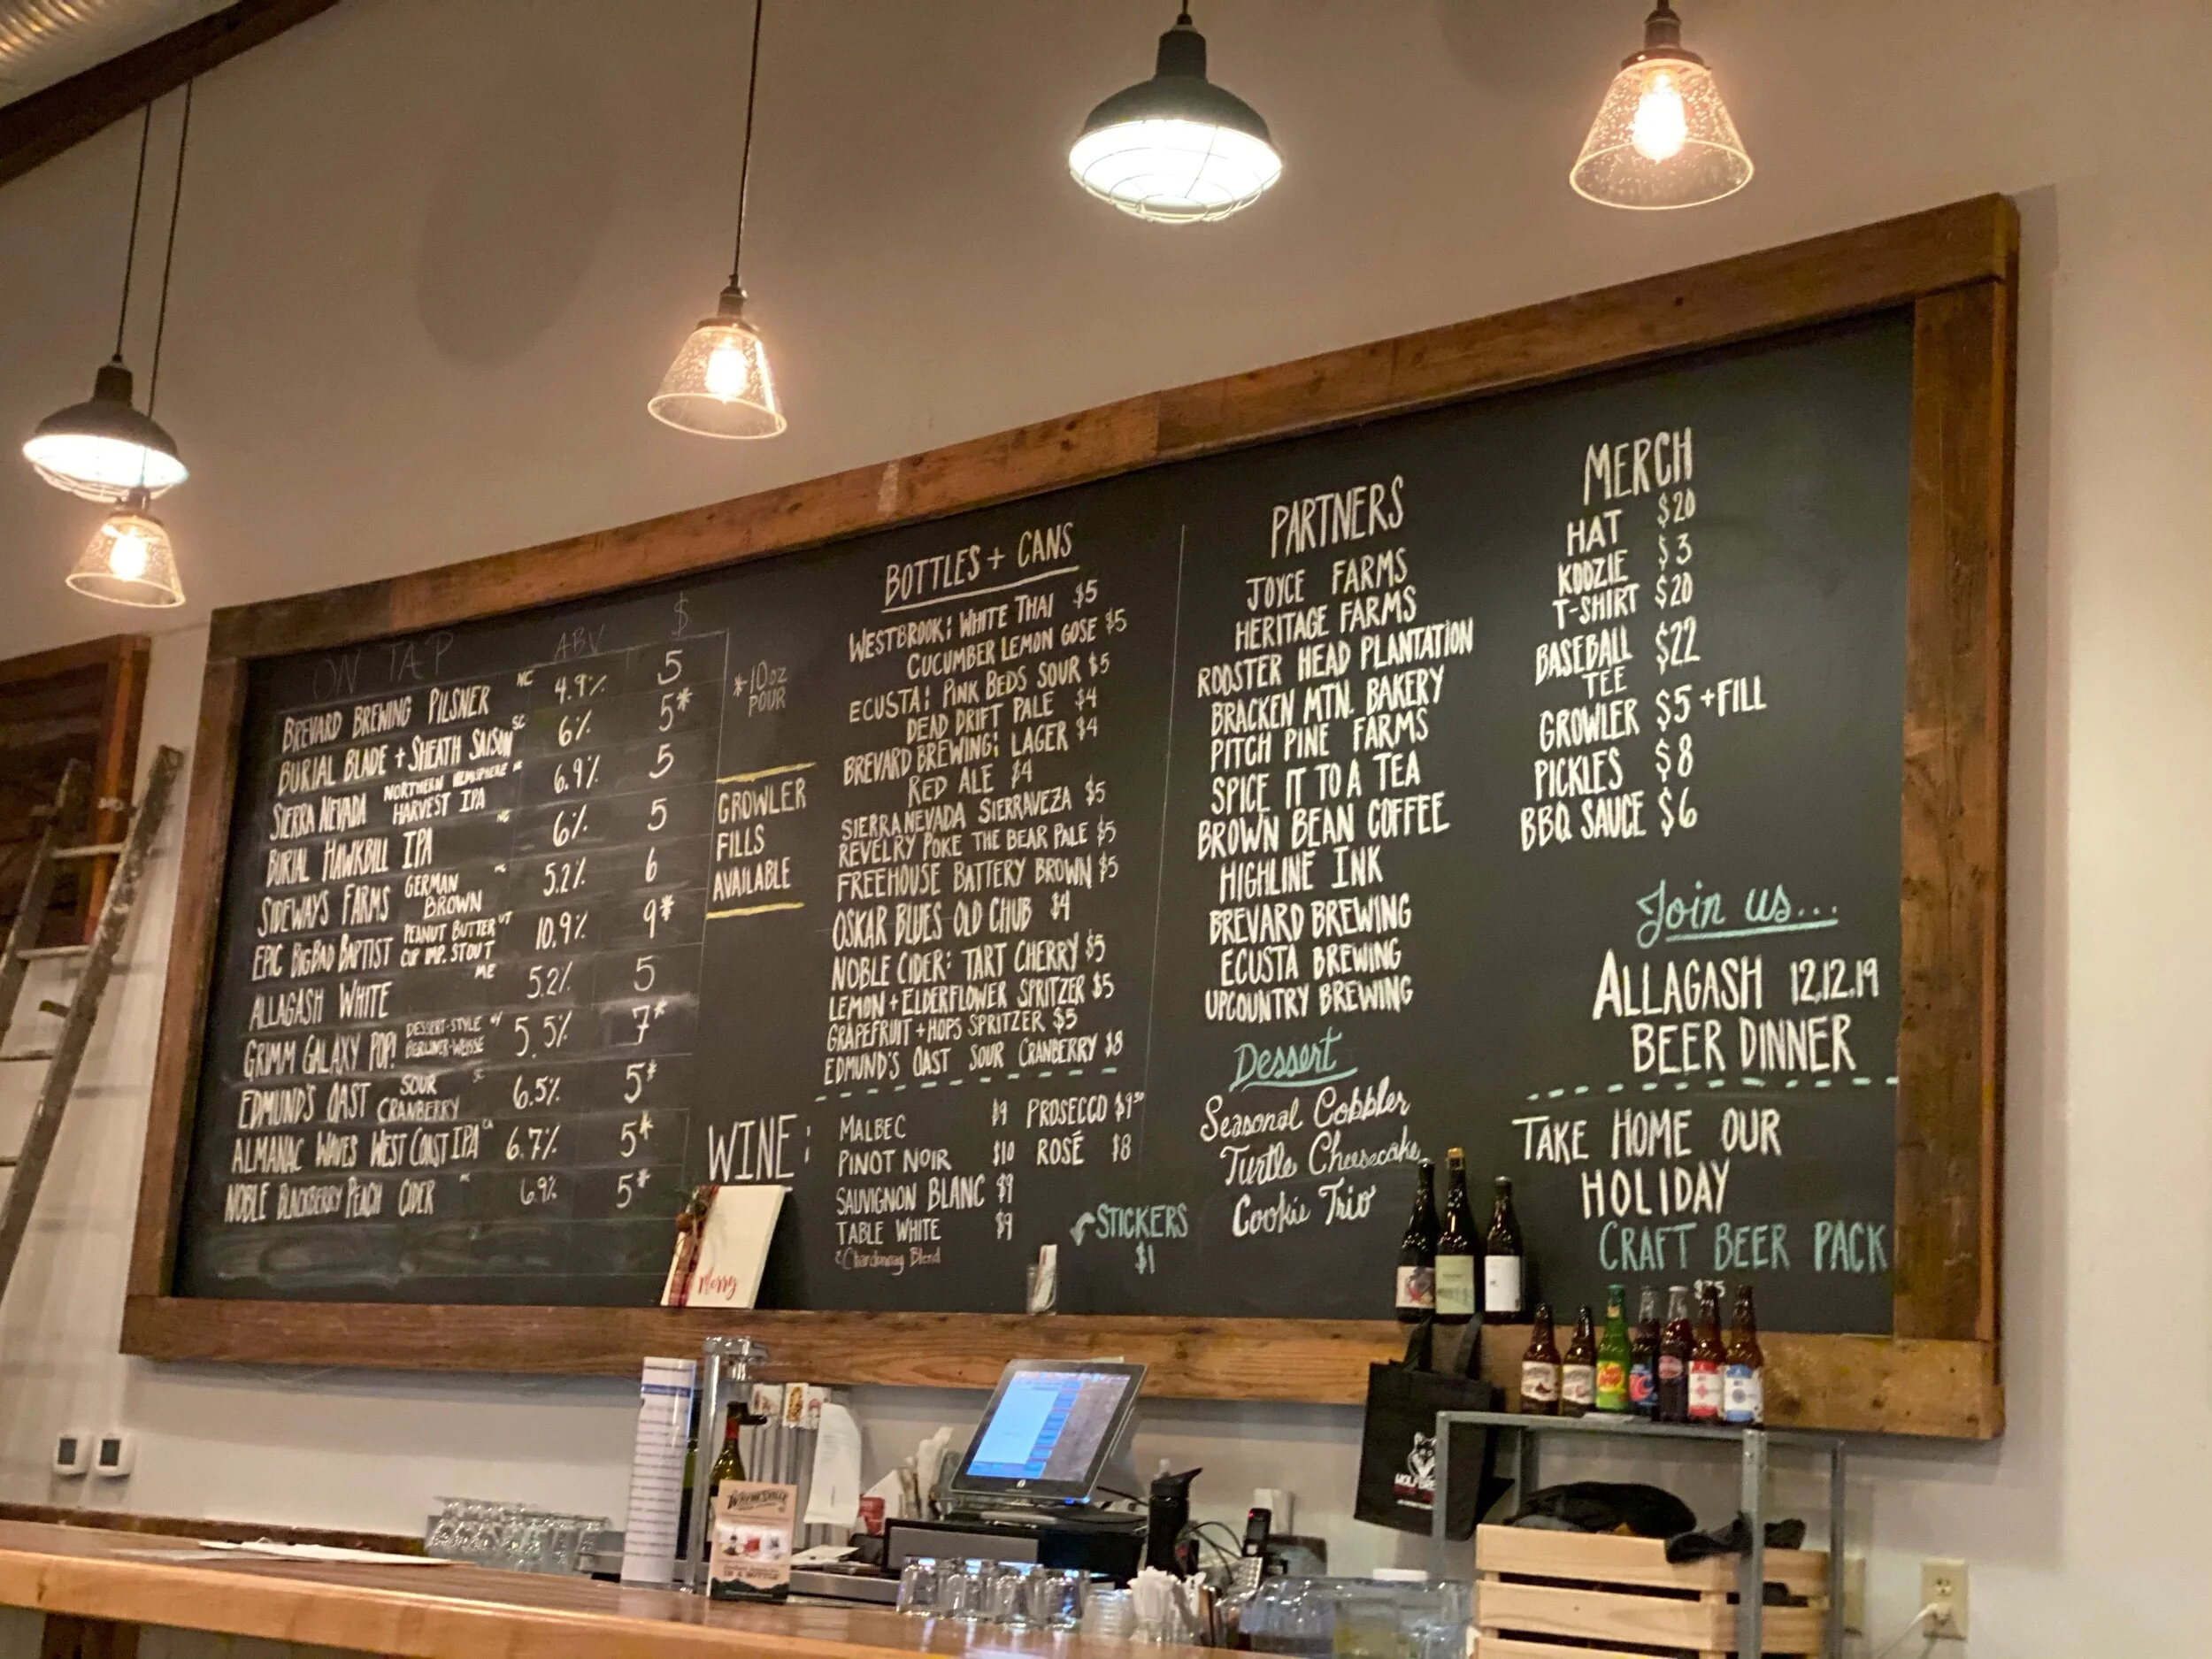 ON TAP ABV $
BREVARD BREWING PILSNER NC 4.9% 5
BURIAL BLADE + SHEATH SAISON SC 6% 5*
SIERRA NEVADA NORTHERN HEMISPHERE HARVEST IPA 6.9% 5
BURIAL HAWKBILL IPA NC 6% 5
SIDEWAYS FARMS GERMAN BROWN NC 5.2% 6
EPIC BIG BAD BAPTIST PEANUT BUTTER CUP IMP. STOUT UT 10.9% 9*
ALLAGASH WHITE ME 5.2% 5
GRIMM GALAXY POP! DESSERT-STYLE BERLINER-WEISSE 5.5% 7*
EDMUND'S OAST SOUR CRANBERRY SC 6.5% 5*
ALMANAC WAVES WEST COAST IPA CA 6.7% 5*
NOBLE BLACKBERRY PEACH CIDER NC 6.9% 5*
*10oz
POUR
GROWLER
FILLS
AVAILABLE
BOTTLES + CANS
WESTBROOK: WHITE THAI $5
CUCUMBER LEMON GOSE $5
ECUSTA: PINK BEDS SOUR $5
DEAD DRIFT PALE $4
BREVARD BREWING: LAGER $4
RED ALE $4
SIERRA NEVADA SIERRAVEZA $5
REVELRY POKE THE BEAR PALE $5
FREEHOUSE BATTERY BROWN $5
OSKAR BLUES OLD CHUB $4
NOBLE CIDER: TART CHERRY $5
LEMON + ELDERFLOWER SPRITZER $5
GRAPEFRUIT + HOPS SPRITZER $5
EDMUND'S OAST SOUR CRANBERRY $8
WINE:
MALBEC $9 PROSECCO $9.50
PINOT NOIR $10 ROSÉ $8
SAUVIGNON BLANC $9
TABLE WHITE $9
Chardonnay Blend
STICKERS
$1
PARTNERS
JOYCE FARMS
HERITAGE FARMS
ROOSTER HEAD PLANTATION
BRACKEN MTN. BAKERY
PITCH PINE FARMS
SPICE IT TO A TEA
BROWN BEAN COFFEE
HIGHLINE INK
BREVARD BREWING
ECUSTA BREWING
UPCOUNTRY BREWING
Dessert
Seasonal Cobbler
Turtle Cheesecake
Cookie Trio
MERCH
HAT $20
KOOZIE $3
T-SHIRT $20
BASEBALL $22
TEE
GROWLER $5 + FILL
PICKLES $8
BBQ SAUCE $6
Join us...
ALLAGASH 12.12.19
BEER DINNER
TAKE HOME OUR
HOLIDAY
CRAFT BEER PACK
Merry
WAYNESVILLE